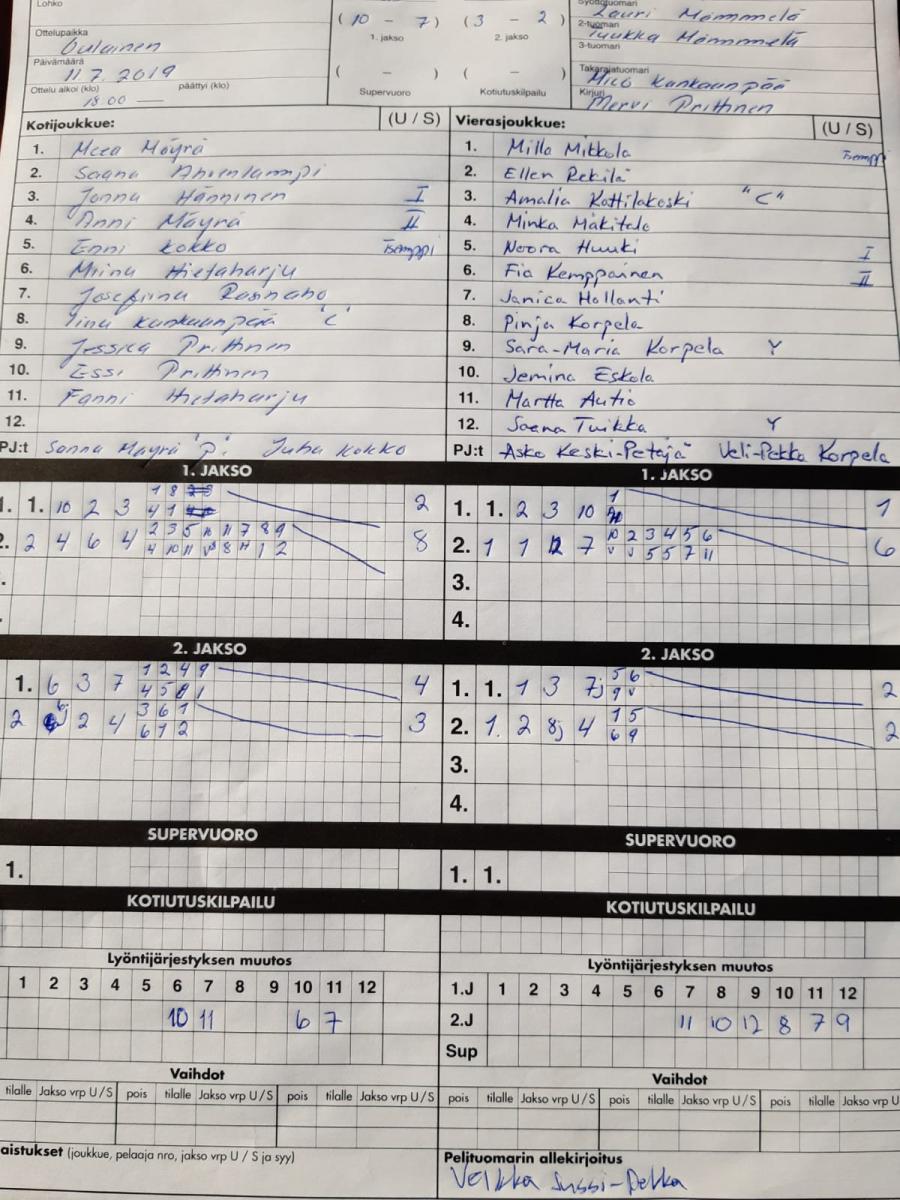 Lohko
Ottelupaikka
Oulainen
Päivämäärä
11.7.2019
Ottelu alkoi (klo) päättyi (klo)
18.00 —
( 10 – 7 ) ( 3 – 2 )
1. jakso 2. jakso
( – ) ( – )
Supervuoro Kotiutuskilpailu
Syöttötuomari
Lauri Mömmelä
2-tuomari
Tuukka Mömmelä
3-tuomari
Takarajatuomari
Mico Kankaanpää
Kirjuri
Mervi Prittinen
Kotijoukkue: (U / S)
1. Meea Möyrä
2. Saana Ahvenlampi
3. Jonna Hänninen I
4. Anni Mäyrä II
5. Enni Kokko Tsemppi
6. Miina Hietaharju
7. Josefiina
8. Iina Kankaanpää "C"
9. Jessica Prittinen
10. Essi Prittinen
11. Fanni Hietaharju
12.
PJ:t Sanna Mäyrä "P". Juha Kokko
Vierasjoukkue: (U / S)
1. Milla Mikkola Tsemppi
2. Ellen Rekilä
3. Amalia Kattilakoski "C"
4. Minka Mäkitalo
5. Noora Huuki I
6. Fia Kemppainen II
7. Janica Hollanti
8. Pinja Korpela
9. Sara-Maria Korpela Y
10. Jemina Eskola
11. Martta Autio
12. Saana Tuikka Y
PJ:t Asko Keski-Petäjä Veli-Pekka Korpela
1. JAKSO
1. 1. 10 2 3 1 8 2
4 1
2. 2 4 6 4 2 3 5 10 11 7 8 9 8
4 10 11 V 8 H 1 2
1. JAKSO
1. 1. 2 3 10 1 1
2. 1 1 12 7 10 2 3 4 5 6 6
V V 5 5 7 11
3.
4.
2. JAKSO
1. 6 3 7 1 2 4 9 4
4 5 8 1
2 6j 2 4 3 6 1 3
6 9 2
2. JAKSO
1. 1. 1 3 7j 5 6 2
9 V
2. 1. 2 8j 4 1 5 2
6 9
3.
4.
SUPERVUORO
1.
SUPERVUORO
1. 1.
KOTIUTUSKILPAILU
KOTIUTUSKILPAILU
Lyöntijärjestyksen muutos
1 2 3 4 5 6 7 8 9 10 11 12
10 11 6 7
Lyöntijärjestyksen muutos
1.J 1 2 3 4 5 6 7 8 9 10 11 12
2.J 11 10 12 8 7 9
Sup
Vaihdot
tilalle Jakso vrp U / S pois tilalle Jakso vrp U / S pois tilalle Jakso vrp U / S
Vaihdot
pois tilalle Jakso vrp U / S pois tilalle Jakso vrp U / S pois tilalle Jakso vrp U
aistukset (joukkue, pelaaja nro, jakso vrp U / S ja syy)
Pelituomarin allekirjoitus
Veikka Jussi-Pekka